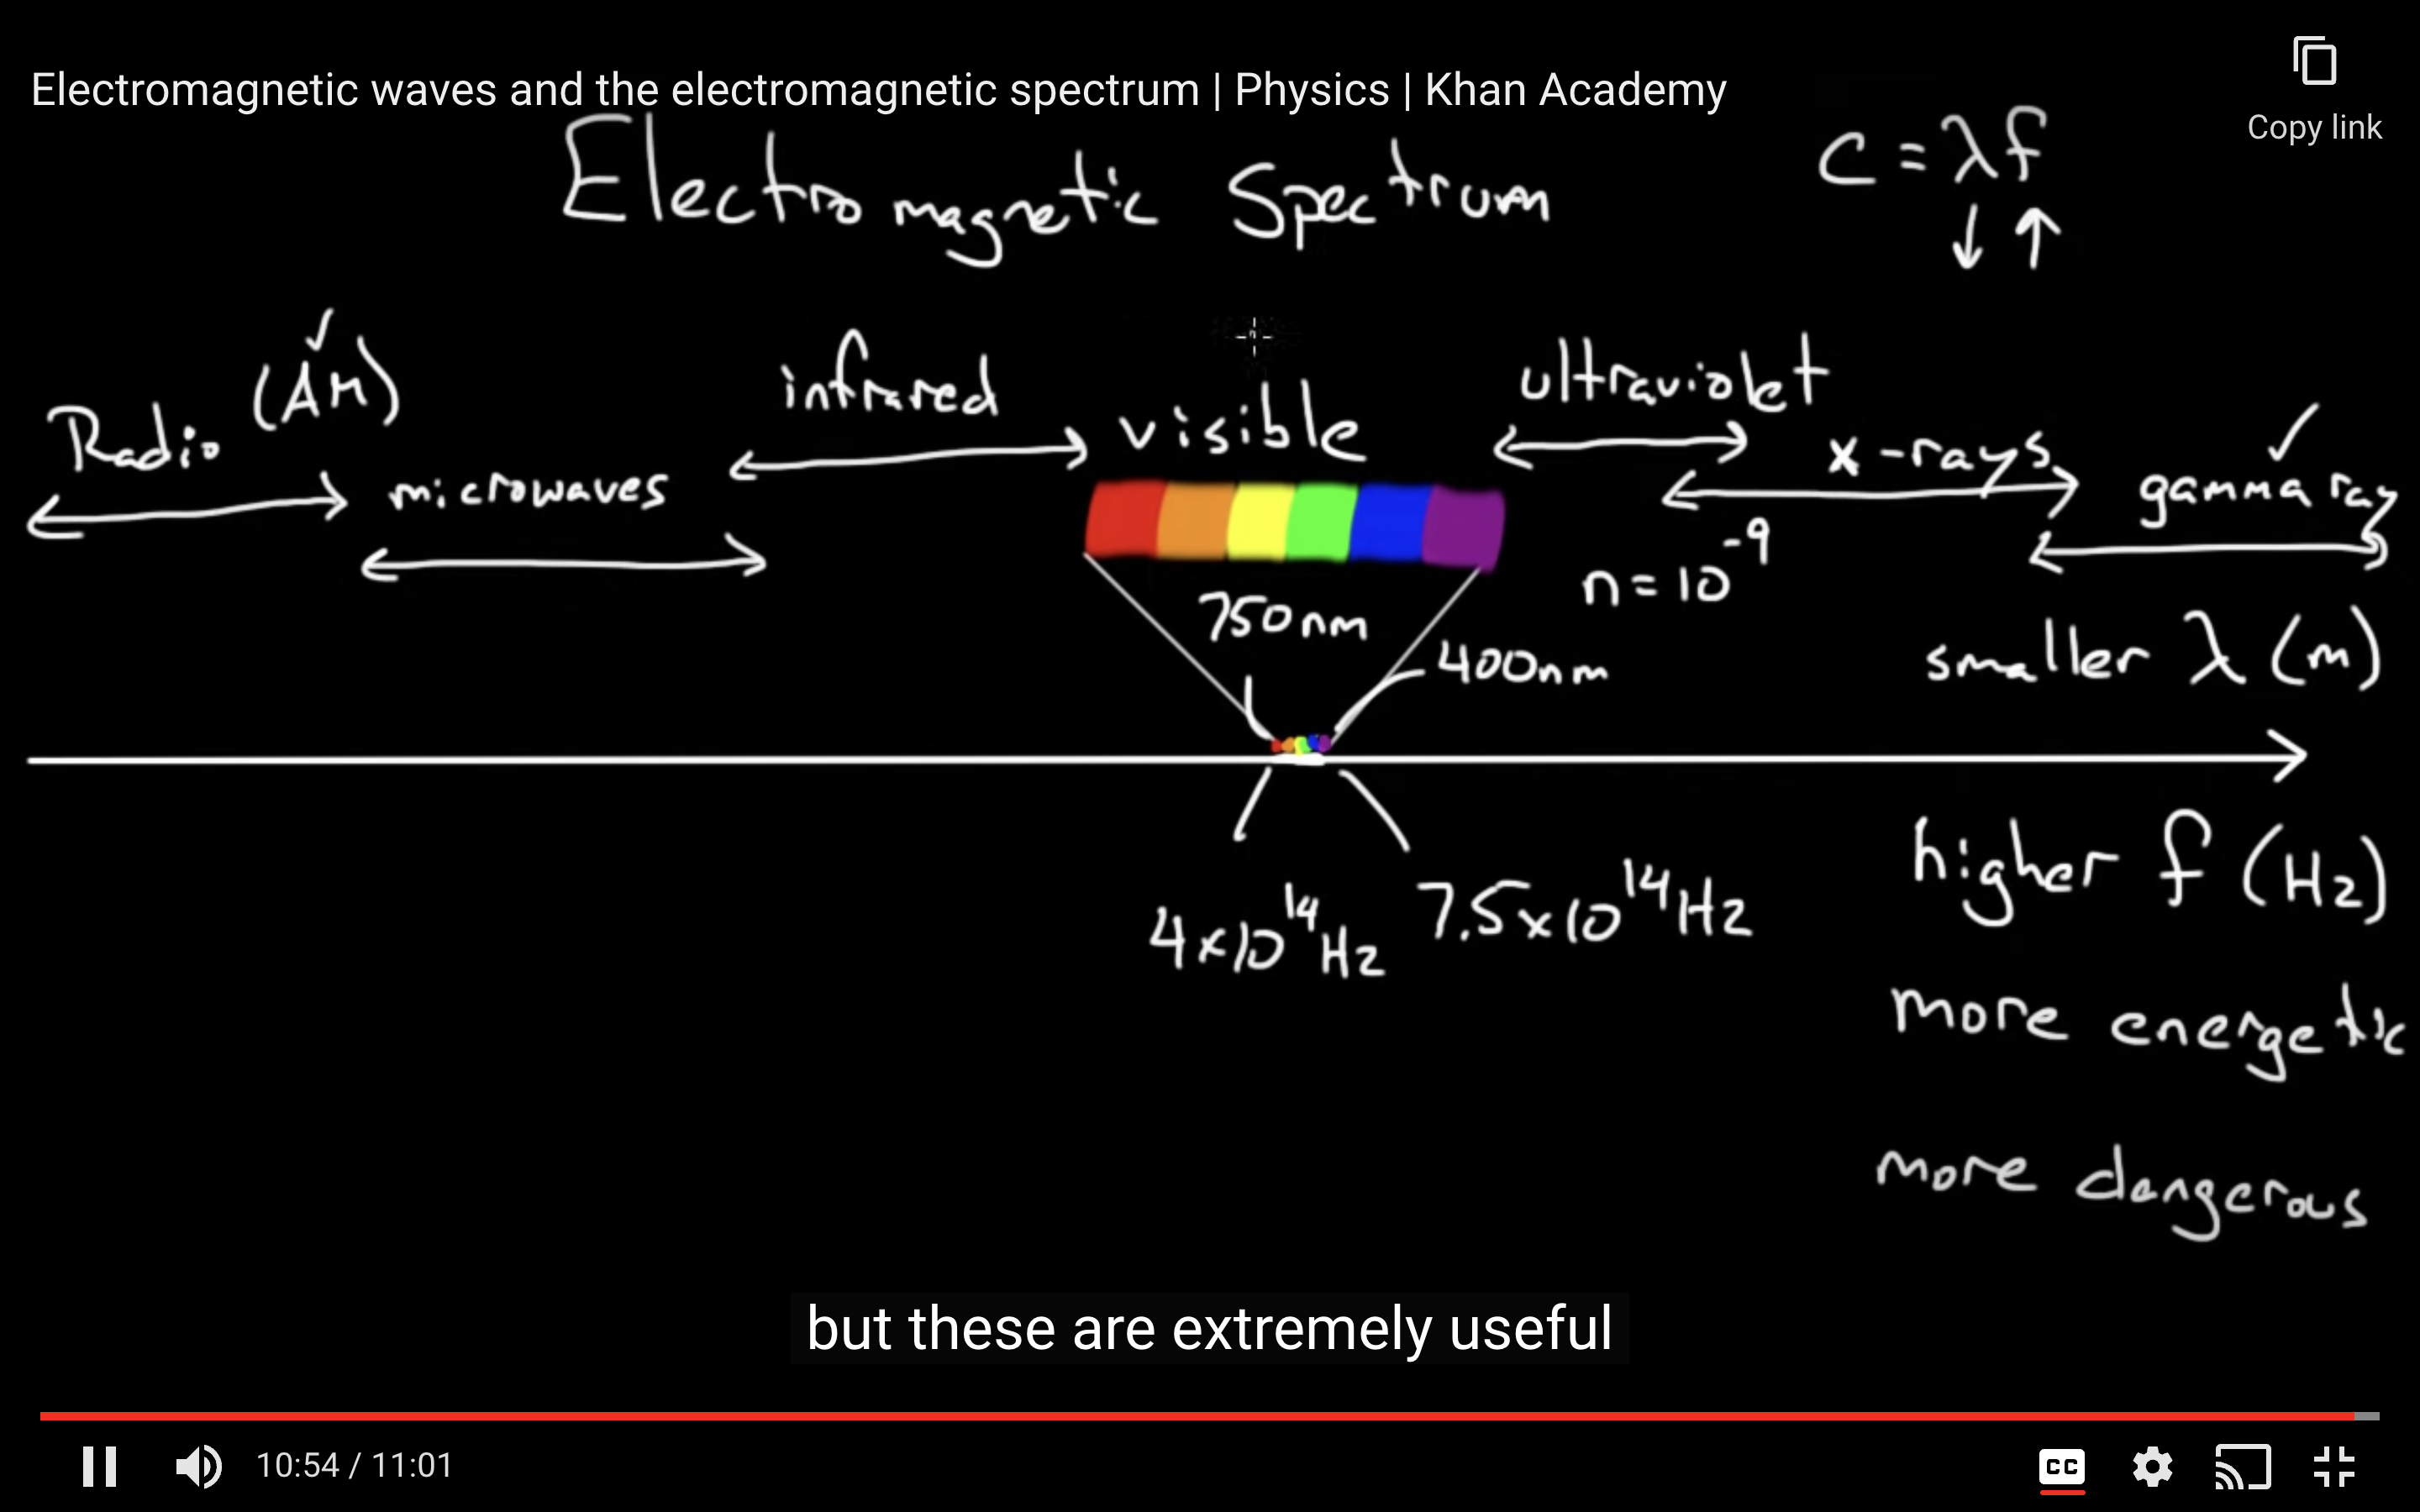 Electromagnetic waves and the electromagnetic spectrum | Physics | Khan Academy
Copy link
Electromagnetic Spectrum
c = λf
↓ ↑
Radio (AM) ✓
microwaves
infrared
visible
ultraviolet
x-rays
gamma ray ✓
750nm
400nm
n = 10⁻⁹
smaller λ (m)
4x10¹⁴Hz
7.5x10¹⁴Hz
higher f (Hz)
more energetic
more dangerous
but these are extremely useful
10:54 / 11:01
CC